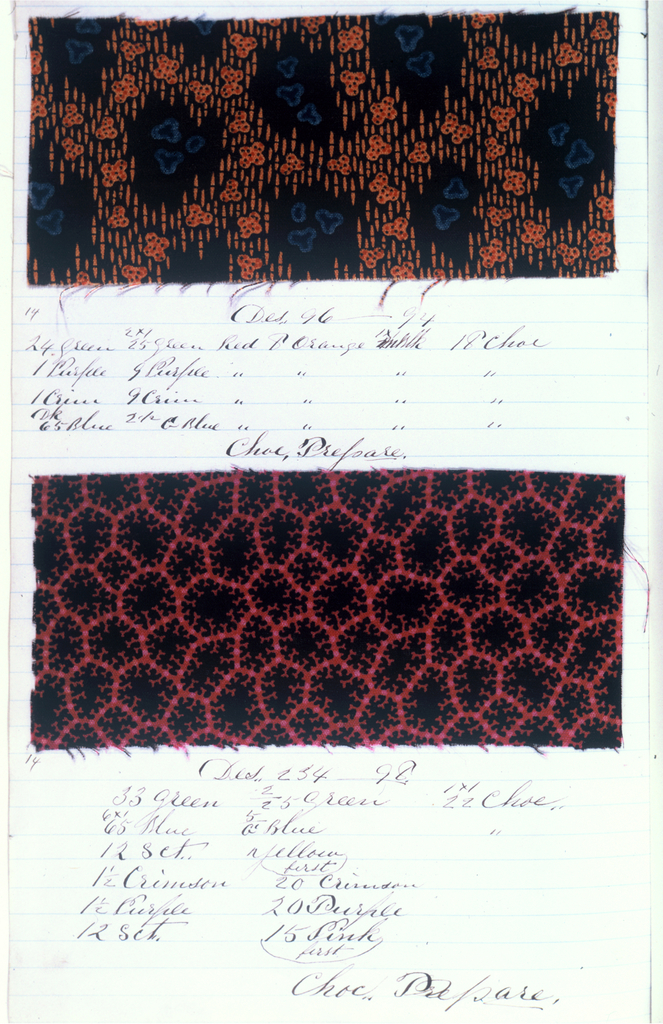 14 Des. 96 — 94
24 Green 2x1 25 Green Red P Orange 18 Choc
1 Purple 9 Purple " " " "
1 Crim 9 Crim " " " "
Dk 65 Blue 2½ C Blue " " " "
Choc, Prepare.
14
Des. 234 — 98
33 Green 2/25 Green 1x1 22 Choc.
6x1 65 Blue 5/C Blue "
12 Sct. Yellow
first
1½ Crimson 20 Crimson
1½ Purple 20 Purple
12 Sct. 15 Pink
first
Choc. Prepare.